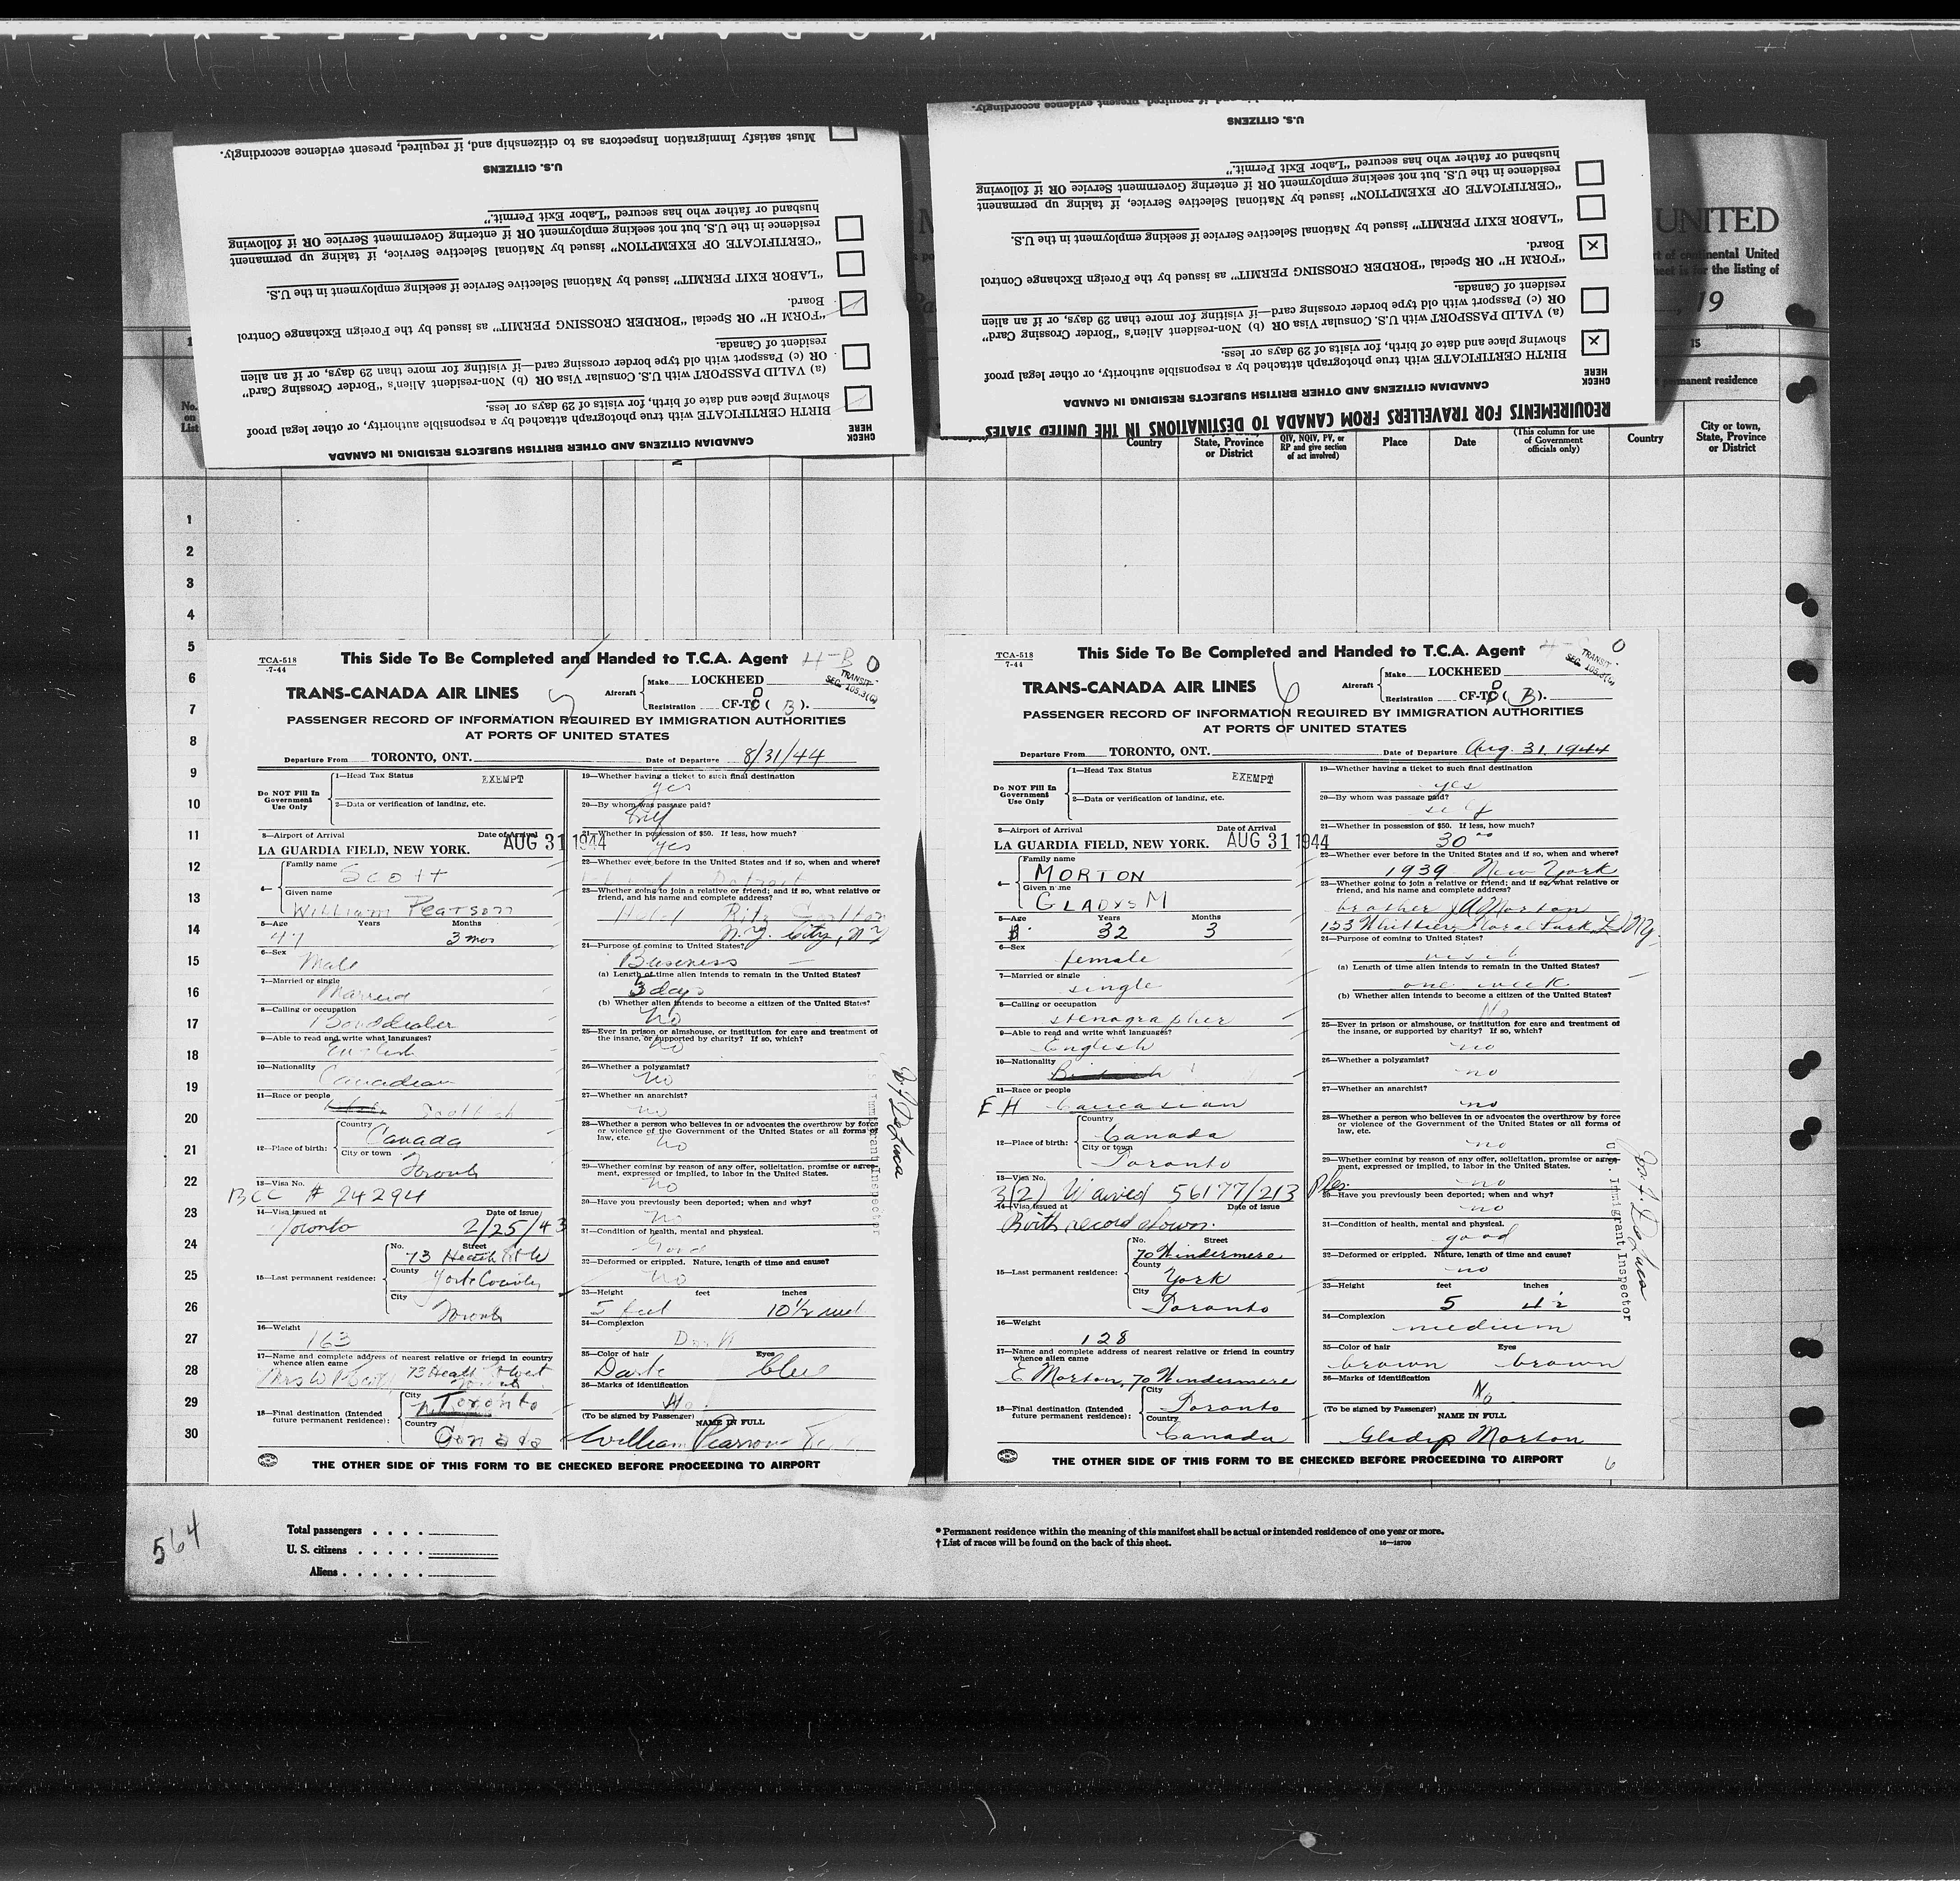 Must satisfy Immigration Inspectors as to citizenship and, if required, present evidence accordingly.
U.S. CITIZENS
husband or father who has secured "Labor Exit Permit."
residence in the U.S. but not seeking employment OR if entering Government Service OR if following
"CERTIFICATE OF EXEMPTION" issued by National Selective Service, if taking up permanent
"LABOR EXIT PERMIT" issued by National Selective Service if seeking employment in the U.S.
Board.
"FORM H" OR Special "BORDER CROSSING PERMIT" as issued by the Foreign Exchange Control
resident of Canada.
OR (c) Passport with old type border crossing card—if visiting for more than 29 days, or if an alien
(a) VALID PASSPORT with U.S. Consular Visa OR (b) Non-resident Alien's "Border Crossing Card"
showing place and date of birth, for visits of 29 days or less.
BIRTH CERTIFICATE with true photograph attached by a responsible authority, or other legal proof
CHECK HERE
CANADIAN CITIZENS AND OTHER BRITISH SUBJECTS RESIDING IN CANADA
if required, present evidence accordingly.
U.S. CITIZENS
husband or father who has secured "Labor Exit Permit."
residence in the U.S. but not seeking employment OR if entering Government Service OR if following
"CERTIFICATE OF EXEMPTION" issued by National Selective Service, if taking up permanent
"LABOR EXIT PERMIT" issued by National Selective Service if seeking employment in the U.S.
Board.
"FORM H" OR Special "BORDER CROSSING PERMIT" as issued by the Foreign Exchange Control
resident of Canada.
OR (c) Passport with old type border crossing card—if visiting for more than 29 days, or if an alien
(a) VALID PASSPORT with U.S. Consular Visa OR (b) Non-resident Alien's "Border Crossing Card"
showing place and date of birth, for visits of 29 days or less.
BIRTH CERTIFICATE with true photograph attached by a responsible authority, or other legal proof
CHECK HERE
CANADIAN CITIZENS AND OTHER BRITISH SUBJECTS RESIDING IN CANADA
REQUIREMENTS FOR TRAVELLERS FROM CANADA TO DESTINATIONS IN THE UNITED STATES
UNITED
of continental United
sheet is for the listing of
, 19
15
permanent residence
No. on List
Country
State, Province or District
QIV, NQIV, PV, or RP and give section of act involved)
Place
Date
(This column for use of Government officials only)
Country
City or town, State, Province or District
1
2
3
4
5
6
7
8
9
10
11
12
13
14
15
16
17
18
19
20
21
22
23
24
25
26
27
28
29
30
TCA-518
7-44
This Side To Be Completed and Handed to T.C.A. Agent H-B 0
TRANSIT
SEC. 105.3(G)
TRANS-CANADA AIR LINES
5
Aircraft Make LOCKHEED
Registration CF-TC (B).
PASSENGER RECORD OF INFORMATION REQUIRED BY IMMIGRATION AUTHORITIES
AT PORTS OF UNITED STATES
Departure From TORONTO, ONT. Date of Departure 8/31/44
Do NOT Fill In Government Use Only
1—Head Tax Status EXEMPT
2—Data or verification of landing, etc.
3—Airport of Arrival Date of Arrival
LA GUARDIA FIELD, NEW YORK. AUG 31 1944
4— Family name Scott
Given name William Pearson
5—Age Years Months
47 3 mos
6—Sex Male
7—Married or single Married
8—Calling or occupation Bond dealer
9—Able to read and write what languages? English
10—Nationality Canadian
11—Race or people Scottish
12—Place of birth: Country Canada
City or town Toronto
13—Visa No.
BCC # 24294
14—Visa Issued at Date of Issue
Toronto 2/25/43
15—Last permanent residence: No. Street 73 Heath St W
County York County
City Toronto
16—Weight 163
17—Name and complete address of nearest relative or friend in country whence alien came
Mrs W P Scott 73 Heath St West
18—Final destination (Intended future permanent residence): City Toronto
Country Canada
19—Whether having a ticket to such final destination yes
20—By whom was passage paid? Self
21—Whether in possession of $50. If less, how much? yes
22—Whether ever before in the United States and if so, when and where? Detroit
23—Whether going to join a relative or friend; and if so, what relative or friend, and his name and complete address?
Hotel Ritz Carlton
N.Y. City, NY
24—Purpose of coming to United States? Business
(a) Length of time alien intends to remain in the United States? 3 days
(b) Whether alien intends to become a citizen of the United States? No
25—Ever in prison or almshouse, or institution for care and treatment of the insane, or supported by charity? If so, which? No
26—Whether a polygamist? No
27—Whether an anarchist? no
28—Whether a person who believes in or advocates the overthrow by force or violence of the Government of the United States or all forms of law, etc. No
29—Whether coming by reason of any offer, solicitation, promise or agreement, expressed or implied, to labor in the United States. No
30—Have you previously been deported; when and why? No
31—Condition of health, mental and physical. Good
32—Deformed or crippled. Nature, length of time and cause? No
33—Height feet inches
5 feet 10½
34—Complexion Dark
35—Color of hair Eyes
Dark blue
36—Marks of identification No
(To be signed by Passenger) NAME IN FULL
William Pearson
THE OTHER SIDE OF THIS FORM TO BE CHECKED BEFORE PROCEEDING TO AIRPORT
Immigrant Inspector
TCA-518
7-44
This Side To Be Completed and Handed to T.C.A. Agent 0
TRANSIT
SEC. 105.3(G)
TRANS-CANADA AIR LINES
6
Aircraft Make LOCKHEED
Registration CF-TC (B).
PASSENGER RECORD OF INFORMATION REQUIRED BY IMMIGRATION AUTHORITIES
AT PORTS OF UNITED STATES
Departure From TORONTO, ONT. Date of Departure Aug. 31, 1944
Do NOT Fill In Government Use Only
1—Head Tax Status EXEMPT
2—Data or verification of landing, etc.
3—Airport of Arrival Date of Arrival
LA GUARDIA FIELD, NEW YORK. AUG 31 1944
4— Family name MORTON
Given name GLADYS M
5—Age Years Months
32 3
6—Sex female
7—Married or single single
8—Calling or occupation stenographer
9—Able to read and write what languages? English
10—Nationality British
11—Race or people
E H Caucasian
12—Place of birth: Country Canada
City or town Toronto
13—Visa No.
3(2) Waived 56177/213
14—Visa Issued at Date of Issue
Birth record shown.
15—Last permanent residence: No. Street 70 Windermere
County York
City Toronto
16—Weight 128
17—Name and complete address of nearest relative or friend in country whence alien came
E Morton, 70 Windermere
18—Final destination (Intended future permanent residence): City Toronto
Country Canada
19—Whether having a ticket to such final destination yes
20—By whom was passage paid? self
21—Whether in possession of $50. If less, how much? 30⁰⁰
22—Whether ever before in the United States and if so, when and where? 1939 New York
23—Whether going to join a relative or friend; and if so, what relative or friend, and his name and complete address?
brother J A Morton
153 Whittier, Floral Park, L.I. N.Y.
24—Purpose of coming to United States? visit
(a) Length of time alien intends to remain in the United States? one week
(b) Whether alien intends to become a citizen of the United States? No
25—Ever in prison or almshouse, or institution for care and treatment of the insane, or supported by charity? If so, which? no
26—Whether a polygamist? no
27—Whether an anarchist? no
28—Whether a person who believes in or advocates the overthrow by force or violence of the Government of the United States or all forms of law, etc. no
29—Whether coming by reason of any offer, solicitation, promise or agreement, expressed or implied, to labor in the United States. no
30—Have you previously been deported; when and why? no
31—Condition of health, mental and physical. good
32—Deformed or crippled. Nature, length of time and cause? no
33—Height feet inches
5 4½
34—Complexion medium
35—Color of hair Eyes
brown brown
36—Marks of identification No
(To be signed by Passenger) NAME IN FULL
Gladys Morton
THE OTHER SIDE OF THIS FORM TO BE CHECKED BEFORE PROCEEDING TO AIRPORT
6
U.S. Immigrant Inspector
564
Total passengers
U. S. citizens
Aliens
* Permanent residence within the meaning of this manifest shall be actual or intended residence of one year or more.
† List of races will be found on the back of this sheet.
16—18709